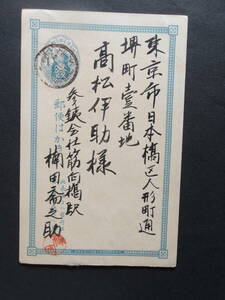 東京市日本橋区人形町通
堺町壹番地
高松伊助様
郵便はかき
参鉄会社筋向橋駅
楠田斎之助